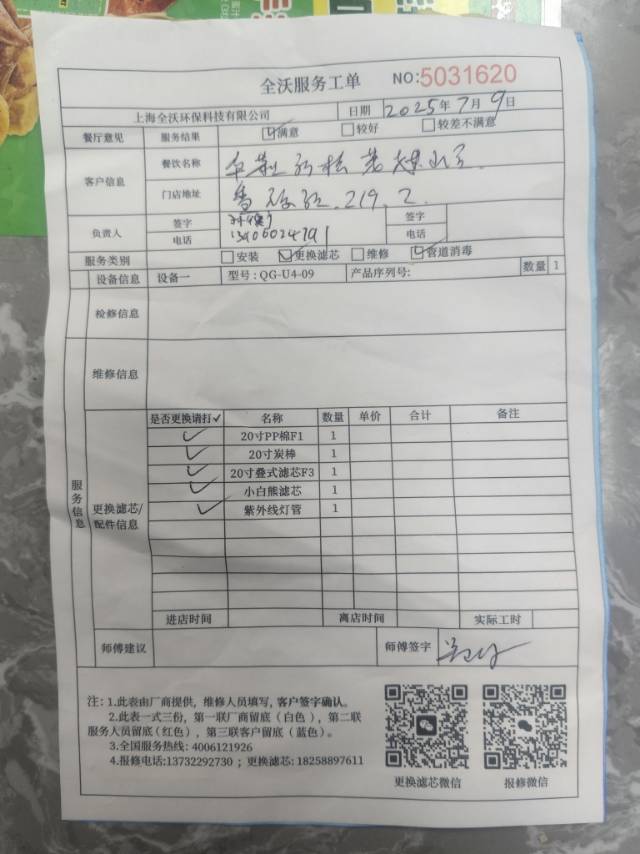 全沃服务工单 NO:5031620
上海全沃环保科技有限公司 日期 2025年7月9日
餐厅意见 服务结果 ☑满意 □较好 □较差不满意
客户信息 餐饮名称
门店地址 219.2
负责人 签字 签字
电话 电话
服务类别 □安装 ☑更换滤芯 □维修 ☑管道消毒
设备信息 设备一 型号:QG-U4-09 产品序列号: 数量 1
检修信息
维修信息
服务信息
更换滤芯/配件信息
是否更换请打✓ 名称 数量 单价 合计 备注
✓ 20寸PP棉F1 1
✓ 20寸炭棒 1
✓ 20寸叠式滤芯F3 1
✓ 小白熊滤芯 1
✓ 紫外线灯管 1
进店时间 离店时间 实际工时
师傅建议 师傅签字
注: 1.此表由厂商提供, 维修人员填写, 客户签字确认。
2.此表一式三份, 第一联厂商留底(白色), 第二联
服务人员留底(红色), 第三联客户留底(蓝色)。
3.全国服务热线: 4006121926
4.报修电话:13732292730 ; 更换滤芯: 18258897611
更换滤芯微信 报修微信